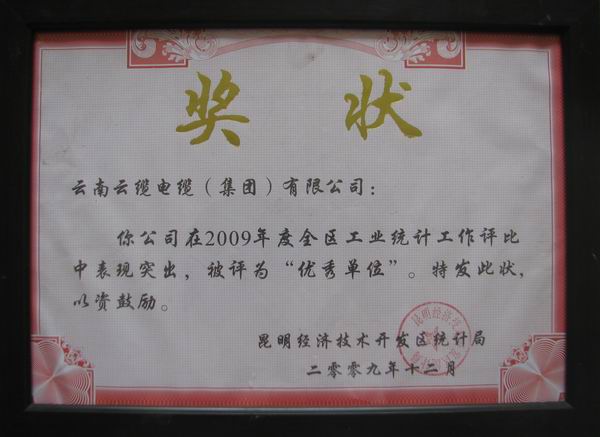 奖状
云南云缆电缆（集团）有限公司：
你公司在2009年度全区工业统计工作评比
中表现突出，被评为“优秀单位”。特发此状，
以资鼓励。
昆明经济技术开发区统计局
二零零九年十二月